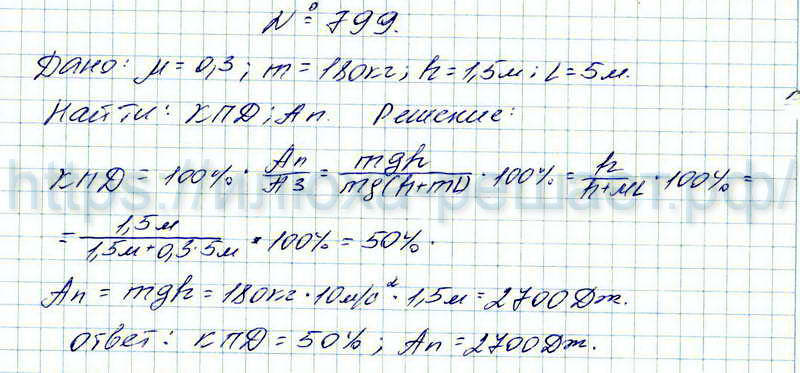 № 799.
Дано: μ = 0,3; m = 180кг; h = 1,5м; L = 5м.
Найти: КПД; Aп. Решение:
КПД = 100% · Aп/Aз = mgh/mg(h+mL) · 100% = h/h+μL · 100% =
= 1,5м/1,5м+0,3·5м · 100% = 50%.
Aп = mgh = 180кг · 10м/с² · 1,5м = 2700Дж.
Ответ: КПД = 50%; Aп = 2700Дж.